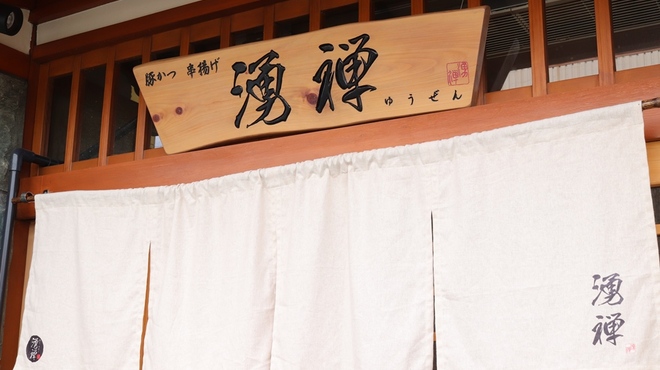 豚かつ 串揚げ
湧禅
ゆうぜん
湧禅
湧禅
湧禅